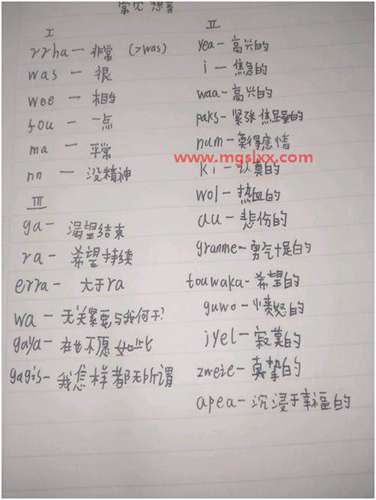 常见
I
rrha — 非常 (>was)
was — 很
wee — 相当
fou — 一点
ma — 平常
nn — 没精神
III
ga — 渴望结束
ra — 希望持续
erra — 大于ra
wa — 无关紧要与我何干?
gaya — 在也不愿如此
gagis — 我怎样都无所谓
II
yea - 高兴的
i - 焦急的
waa - 高兴的
paks - 紧张焦虑的
num - 莫得感情
www.mgslxx.com
ki - 认真的
wol - 热血的
au - 悲伤的
granme - 勇气十足的
touwaka - 希望的
guwo - 愤怒的
iyel - 寂寞的
zweie - 真挚的
apea - 沉浸于幸福的